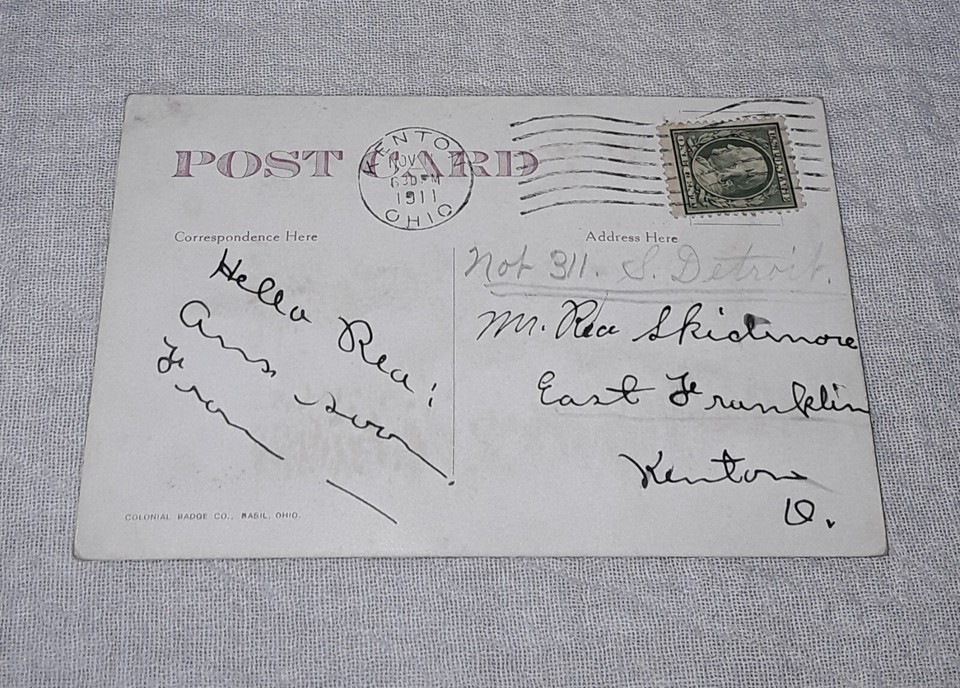 POST CARD
KENTON
NOV
630 PM
1911
OHIO
Correspondence Here
Address Here
Not 311. S. Detroit.
Hello Rea!
Ans soon
From
Mr. Rea Skidmore
East Franklin
Kenton
O.
COLONIAL BADGE CO., BASIL, OHIO.